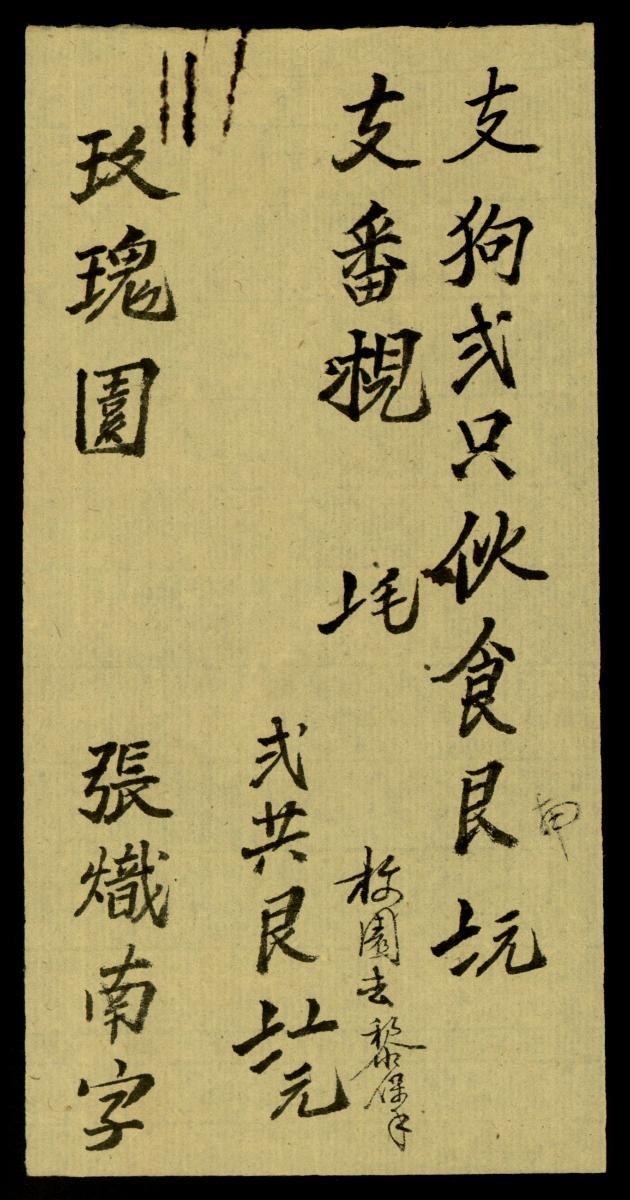 支狗弍只伙食艮〧元
支番梘 〦毛
園去黎保手
弍共艮〧〦元
玫瑰園 張熾南字